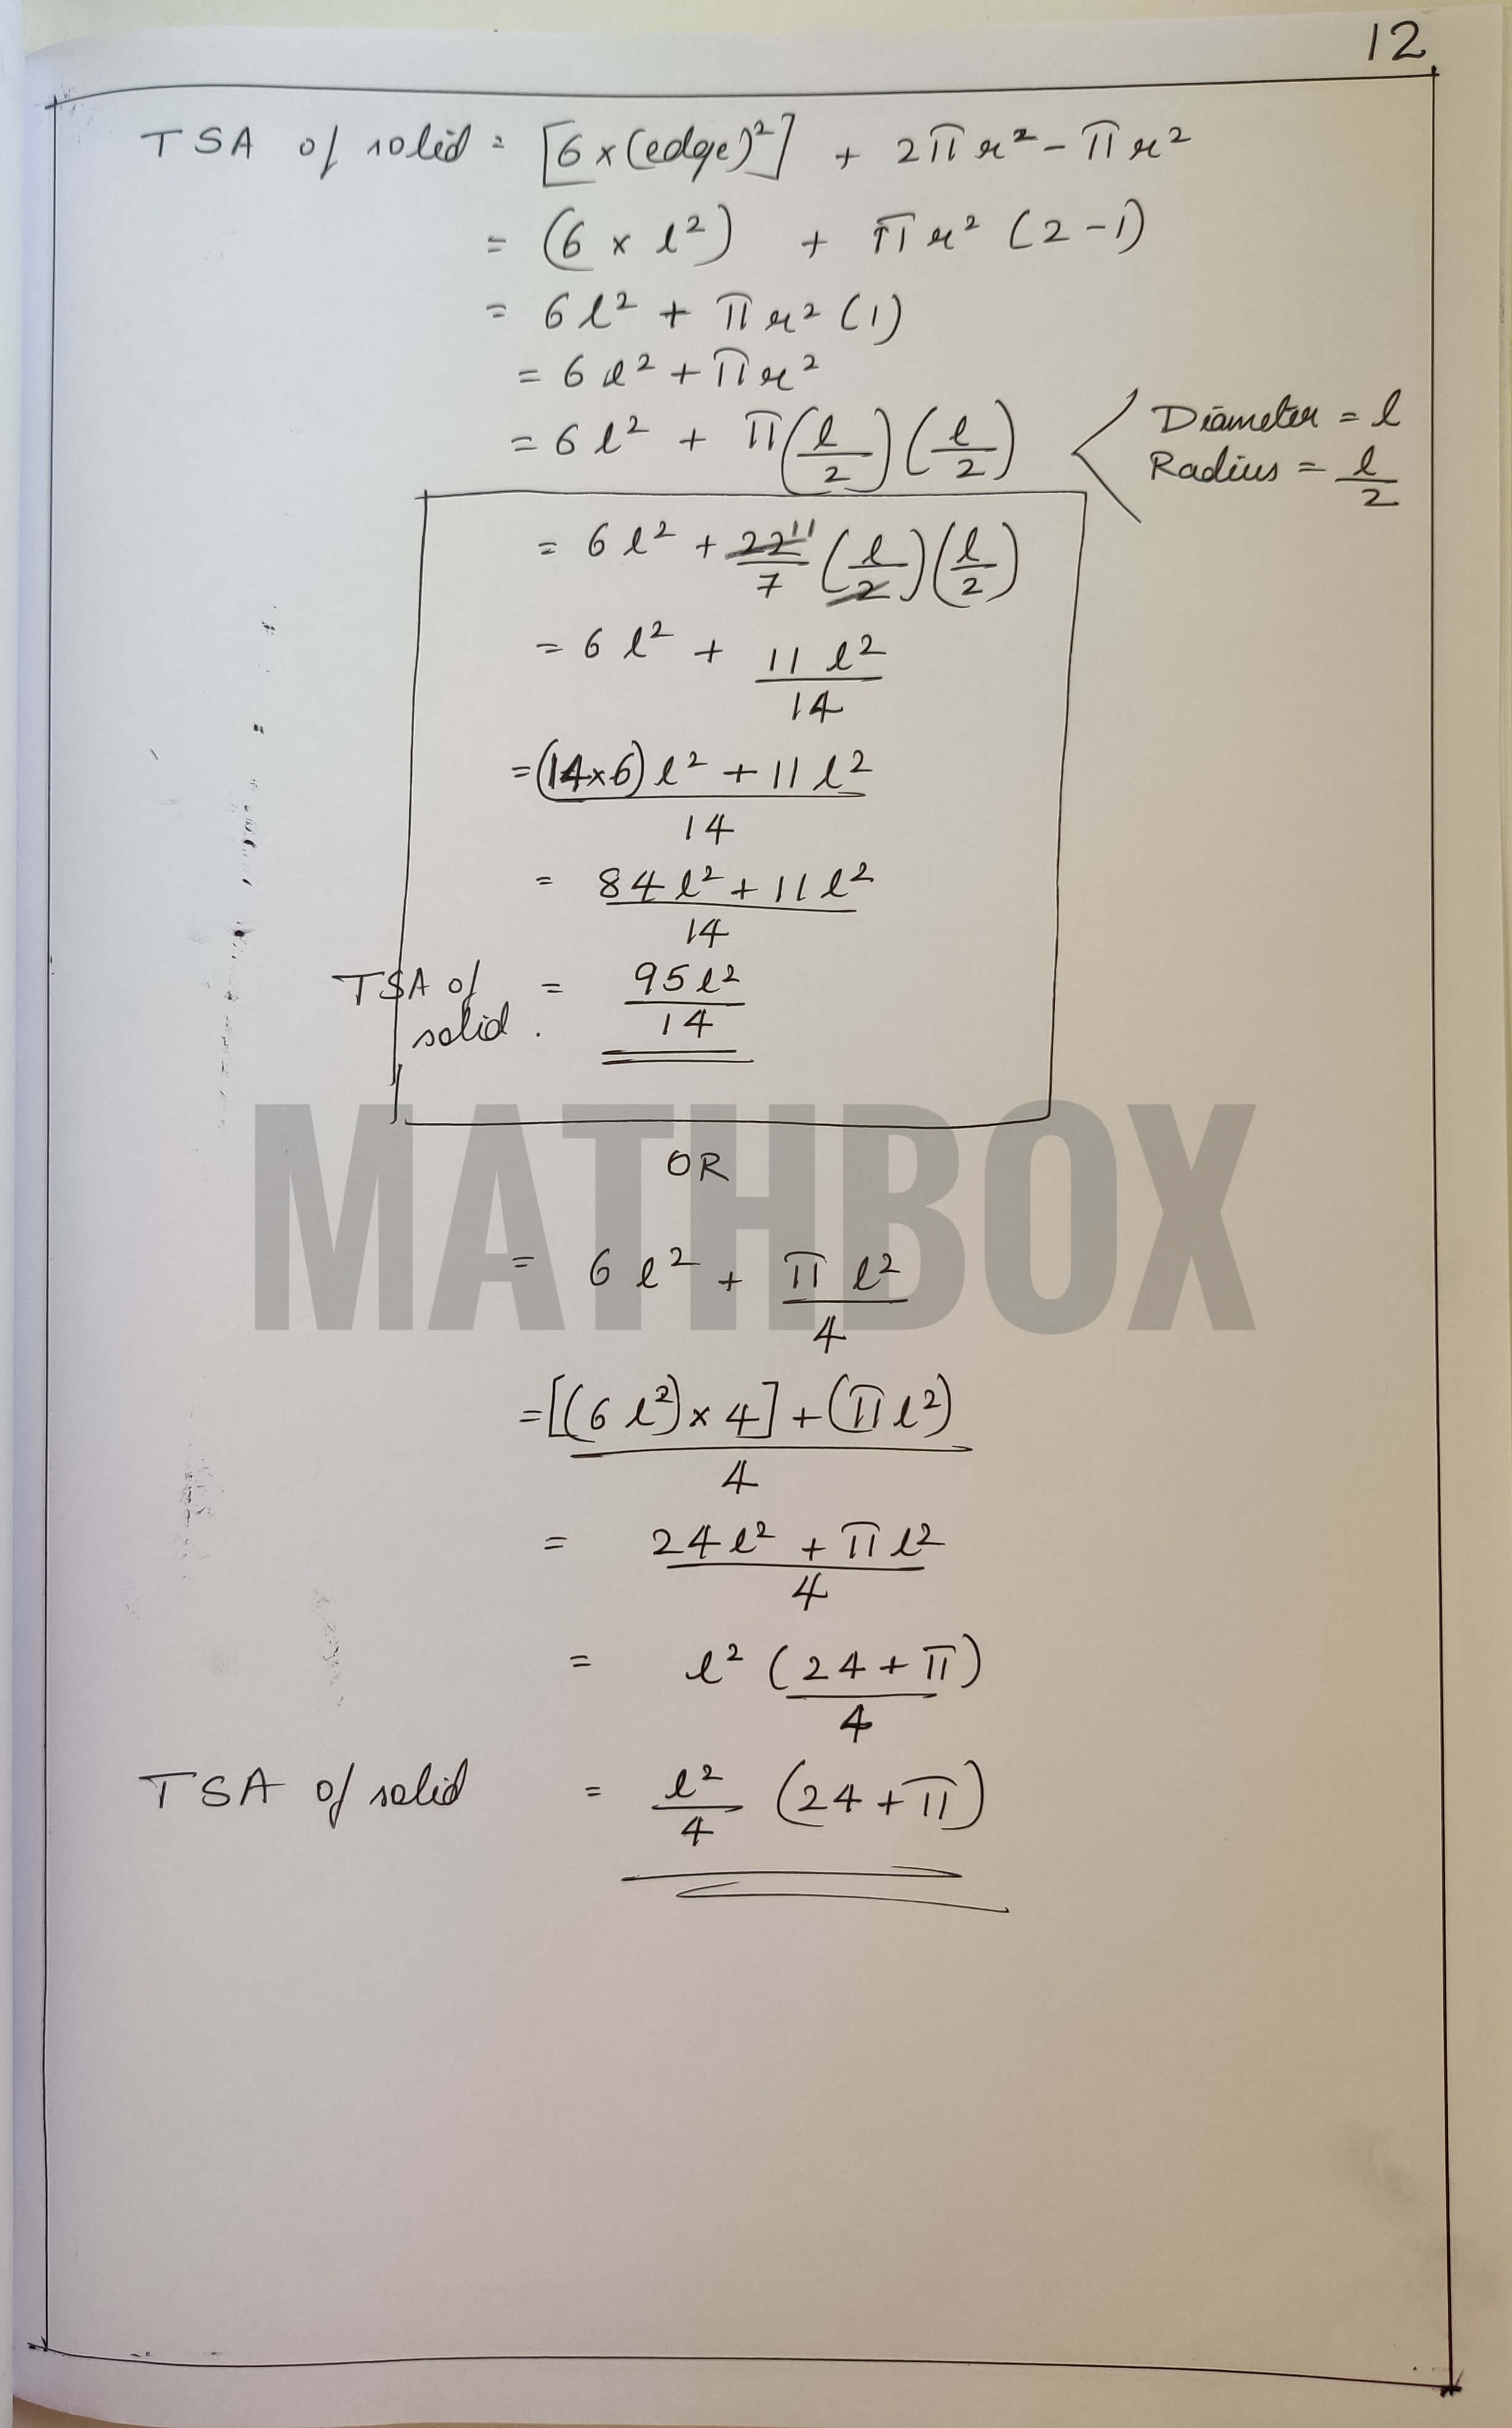 12
TSA of solid = [6 × (edge)²] + 2πr² - πr²
= (6 × l²) + πr² (2-1)
= 6l² + πr² (1)
= 6l² + πr²
= 6l² + π(l/2)(l/2)
Diameter = l
Radius = l/2
= 6l² + 22 11/7 (l/2)(l/2)
= 6l² + 11l²/14
= (14×6)l² + 11l²/14
= 84l² + 11l²/14
TSA of solid. = 95l²/14
MATHBOX
OR
= 6l² + πl²/4
= [(6l²) × 4] + (πl²)/4
= 24l² + πl²/4
= l² (24 + π)/4
TSA of solid = l²/4 (24 + π)